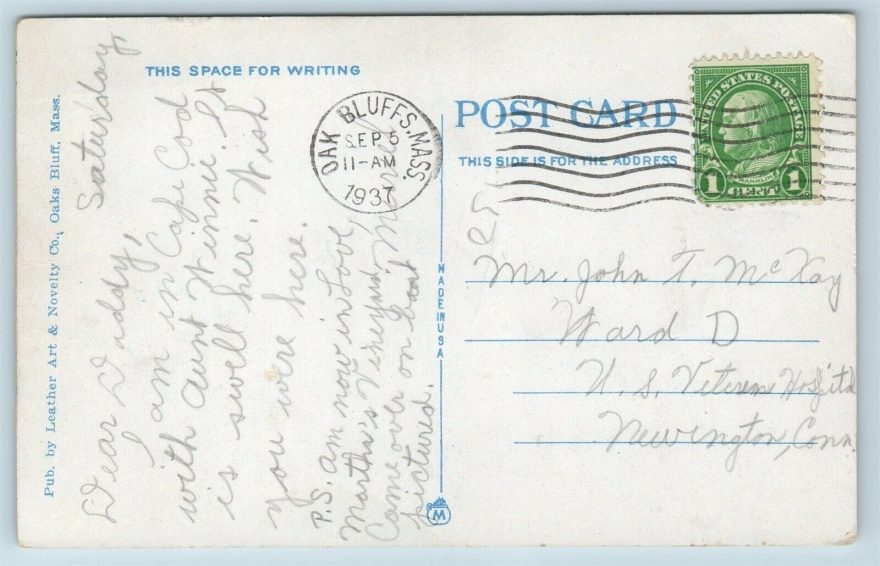 THIS SPACE FOR WRITING
Saturday,
Dear Daddy,
I am in Cape Cod
with Aunt Winnie. It
is swell here. Wish
you were here.
P.S. am now in
Martha's Vineyard
Came over on boat
pictured.
Marie
Pub. by Leather Art & Novelty Co., Oaks Bluff, Mass.
MADE IN USA
M
OAK BLUFFS, MASS.
SEP 5
11-AM
1937
POST CARD
THIS SIDE IS FOR THE ADDRESS
UNITED STATES POSTAGE
FRANKLIN
1 CENT 1
Mr. John T. McKay
Ward D
U. S. Veterans Hospital
Newington, Conn.